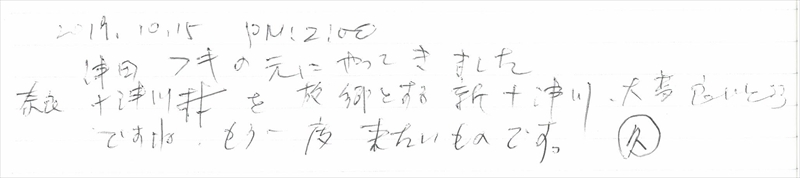 2019.10.15 PM:2:00
津田フキの元にやってきました
奈良 十津川村を故郷とする新十津川、大変良いところ
ですね。もう一度来たいものです。 久